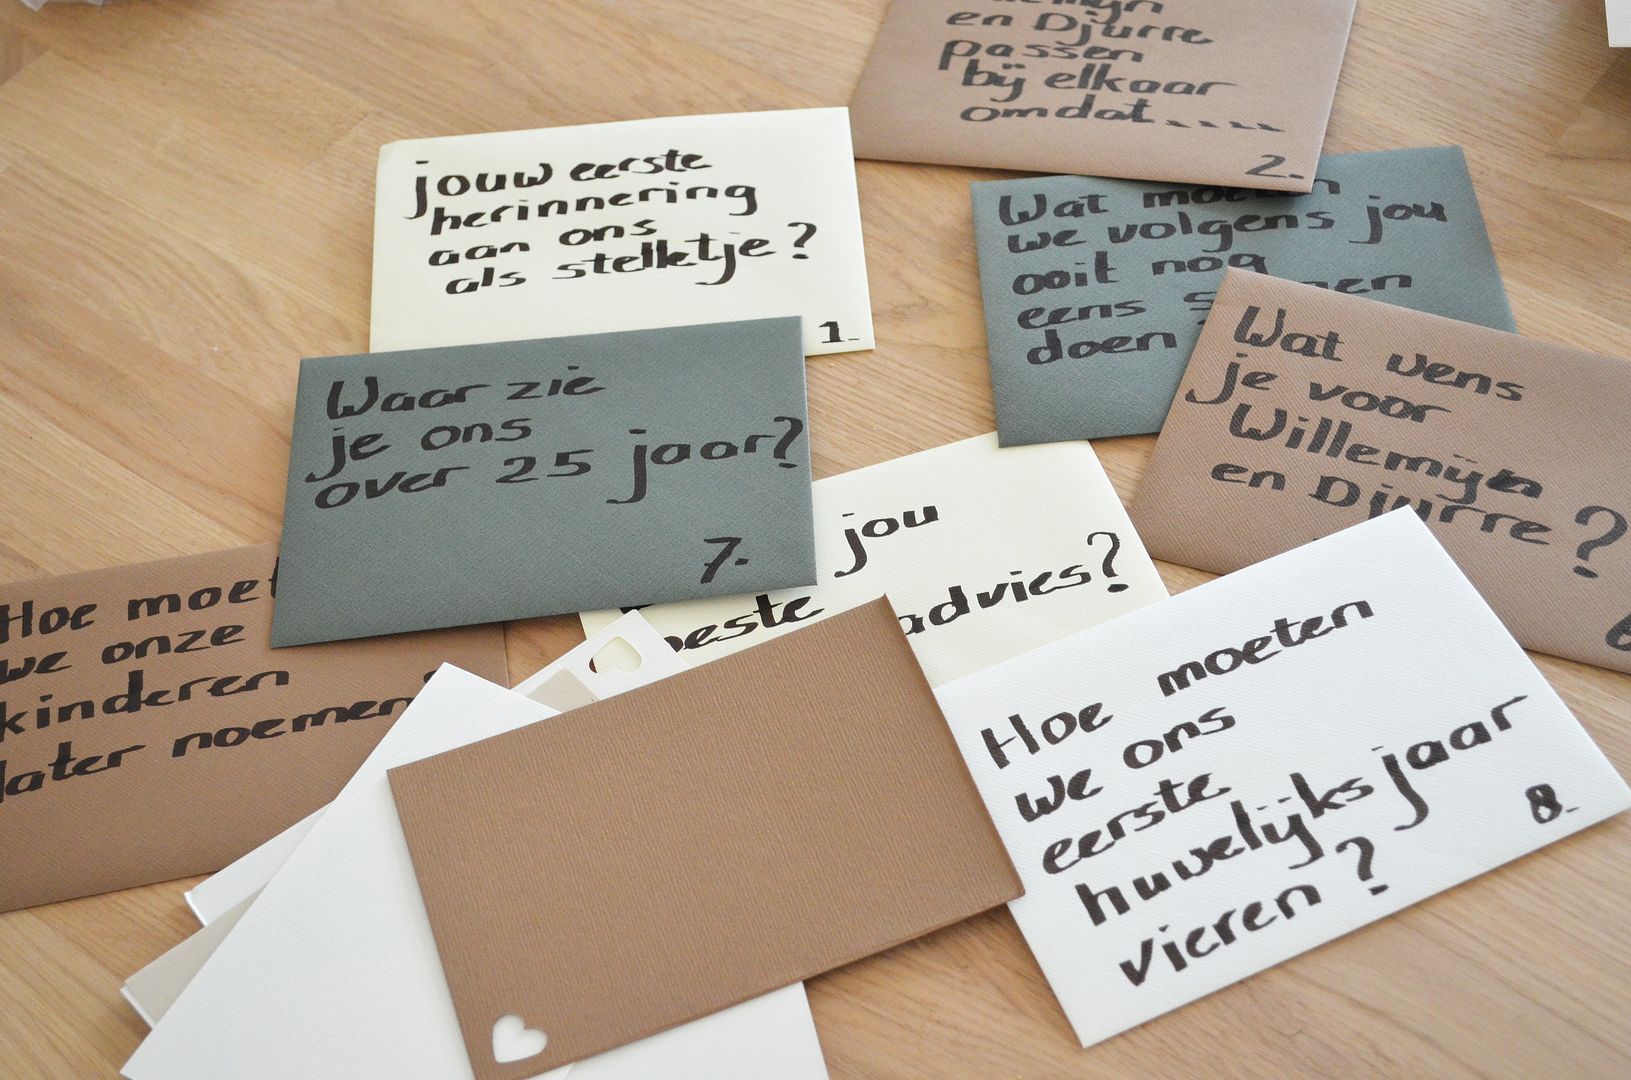 en Djurre
passen
bij elkaar
omdat.....
2.
jouw eerste
herinnering
aan ons
als stelletje?
1.
Wat
we volgens jou
ooit nog
eens
doen
Waar zie
je ons
over 25 jaar?
7.
Wat wens
je voor
Willemijn
en Djurre?
jou
beste advies?
Hoe moet
we onze
kinderen
later noemen
Hoe moeten
we ons
eerste
huwelijksjaar
vieren?
8.